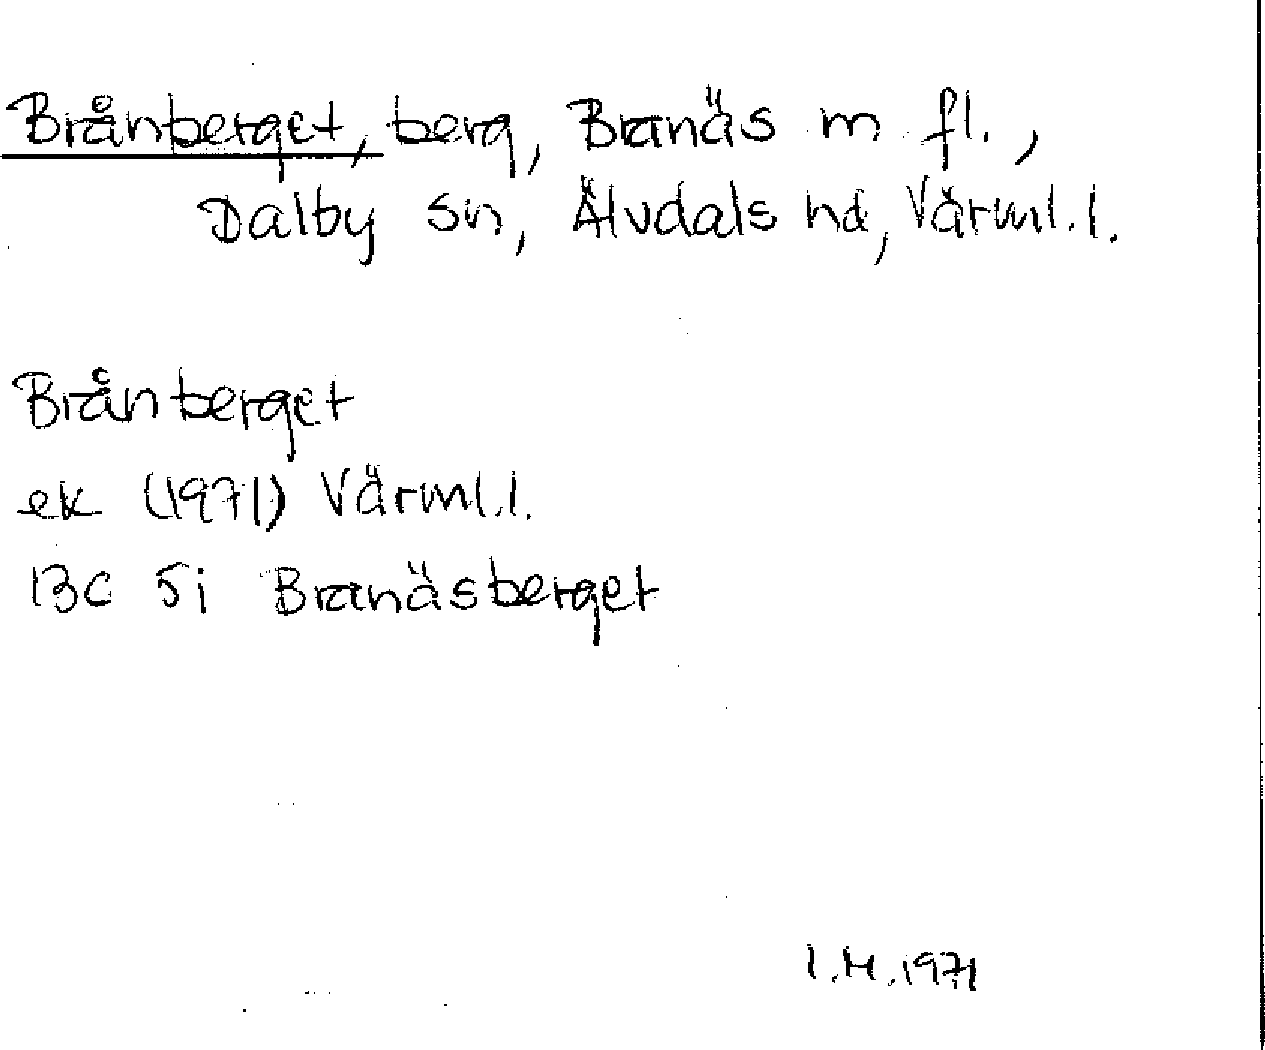 Brånberget, berg, Branäs m fl.,
Dalby sn, Älvdals hd, Värml. l.
Brånberget
ek (1971) Värml. l.
13C 5i Branäsberget
I.M. 1971